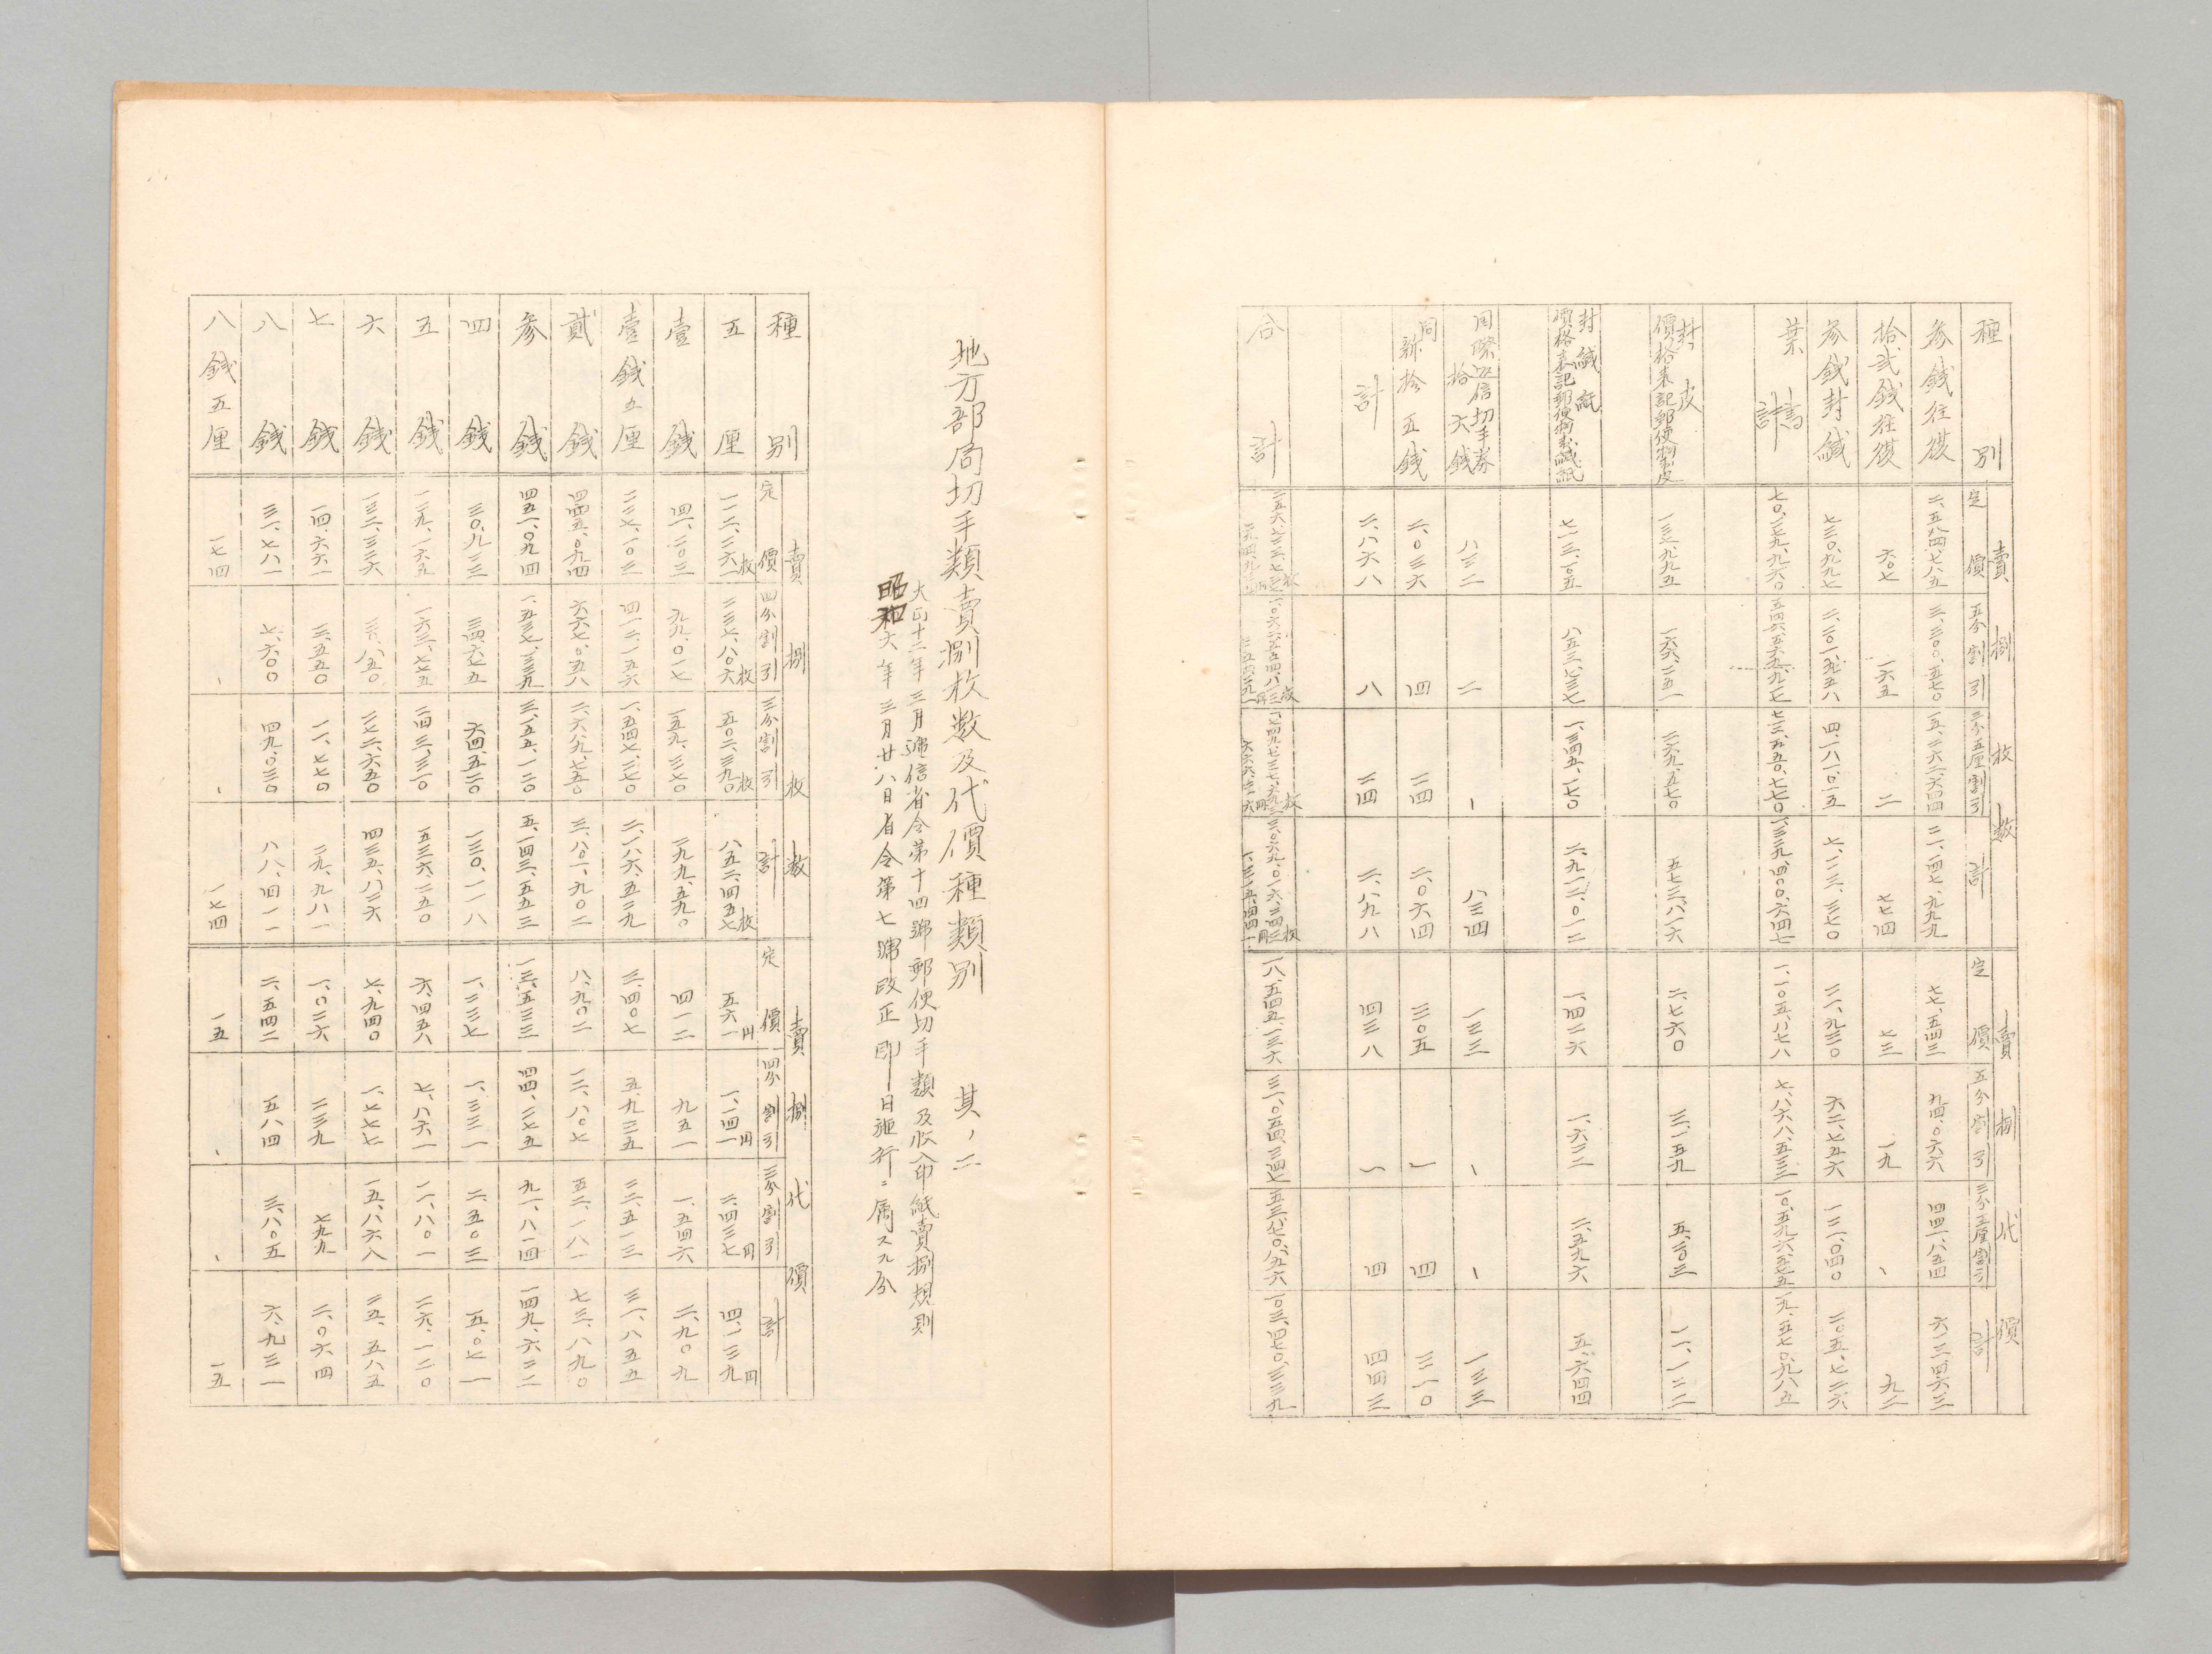 種別
賣捌枚数
賣捌代價
定價
五分割引
三分五厘割引
計
定價
五分割引
三分五厘割引
計
参銭往復
二、五八四、七八五
七七、五四三
九四、〇六六
四四一、八五四
拾弐銭往復
六〇七
一六五
二
七七四
七三
一九
、
九二
参銭封緘
七三〇、九九七
七、一一三、三七〇
二一、九三〇
六二、七五六
葉書計
一、一〇五、八七八
七、八六八、五三三
封皮
價格表記郵便物封皮
五七三、八一六
二、七六〇
三、一五九
一一、一二二
封緘紙
價格表記郵便物封緘紙
七一三、一〇五
八五三、七三七
一、三四五、一七〇
二、九一二、〇一二
一、四二六
一、六二二
二、五九六
五、六四四
国際返信切手券
拾六銭
八三二
二
、
八三四
一三三
、
、
一三三
同
弥拾五銭
二、〇三六
四
二四
二、〇六四
三〇五
一
四
三一〇
計
二、八六八
八
二四
二、八九八
四三八
一
四
四四三
合計
一八、五四五、一三六
三一、〇五四、三四七
一〇三、四七〇、三三九
地方部局切手類賣捌枚数及代價種類別　其ノ二
大正十二年三月逓信省令第十四號郵便切手類及收入印紙賣捌規則
昭和六年三月廿八日省令第七號改正即日施行ニ属スル分
種別
賣捌枚数
賣捌代價
定價
四分割引
三分割引
計
定價
四分割引
三分割引
計
五厘
一一二、二六一枚
二三七、八〇六枚
五〇二、三九〇枚
八五二、四五七枚
五六一円
一、一四一円
二、四三七円
四、一三九円
壹銭
四一、二〇三
九九、〇一七
一五九、三七〇
二九九、五九〇
四一二
九五一
一、五四六
二、九〇九
壹銭五厘
二二七、一〇三
四一二、一五六
一、五四七、二七〇
二、一八六、五二九
三、四〇七
五、九三五
二二、五一三
三一、八五五
貳銭
四四五、〇九四
六六七、〇五八
二、六八九、七五〇
三、八〇一、九〇二
八、九〇二
一二、八〇七
五二、一八一
七三、八九〇
参銭
四五一、〇九四
一、五三七、三三九
三、一五五、一二〇
五、一四三、五五三
一三、五三三
四四、二七五
九一、八一四
一四九、六二二
四銭
三〇、九二三
三四、六七五
六四、五二〇
一三〇、一一八
一、二三七
一、三三一
二、五〇三
五、〇七一
五銭
一二九、一六五
一六三、七七五
二四三、三一〇
五三六、二五〇
六、四五八
七、八六一
一一、八〇一
二六、一二〇
六銭
一三二、三二六
三〇、八五〇
二七二、六五〇
四三五、八二六
七、九四〇
一、七七七
一五、八六八
二五、五八五
七銭
一四、六六一
三、五五〇
一一、七七〇
二九、九八一
一、〇二六
二三九
七九九
二、〇六四
八銭
三一、七八一
七、六〇〇
四九、〇三〇
八八、四一一
二、五四二
五八四
三、八〇五
六、九三一
八銭五厘
一七四
、
、
一七四
一五
、
、
一五